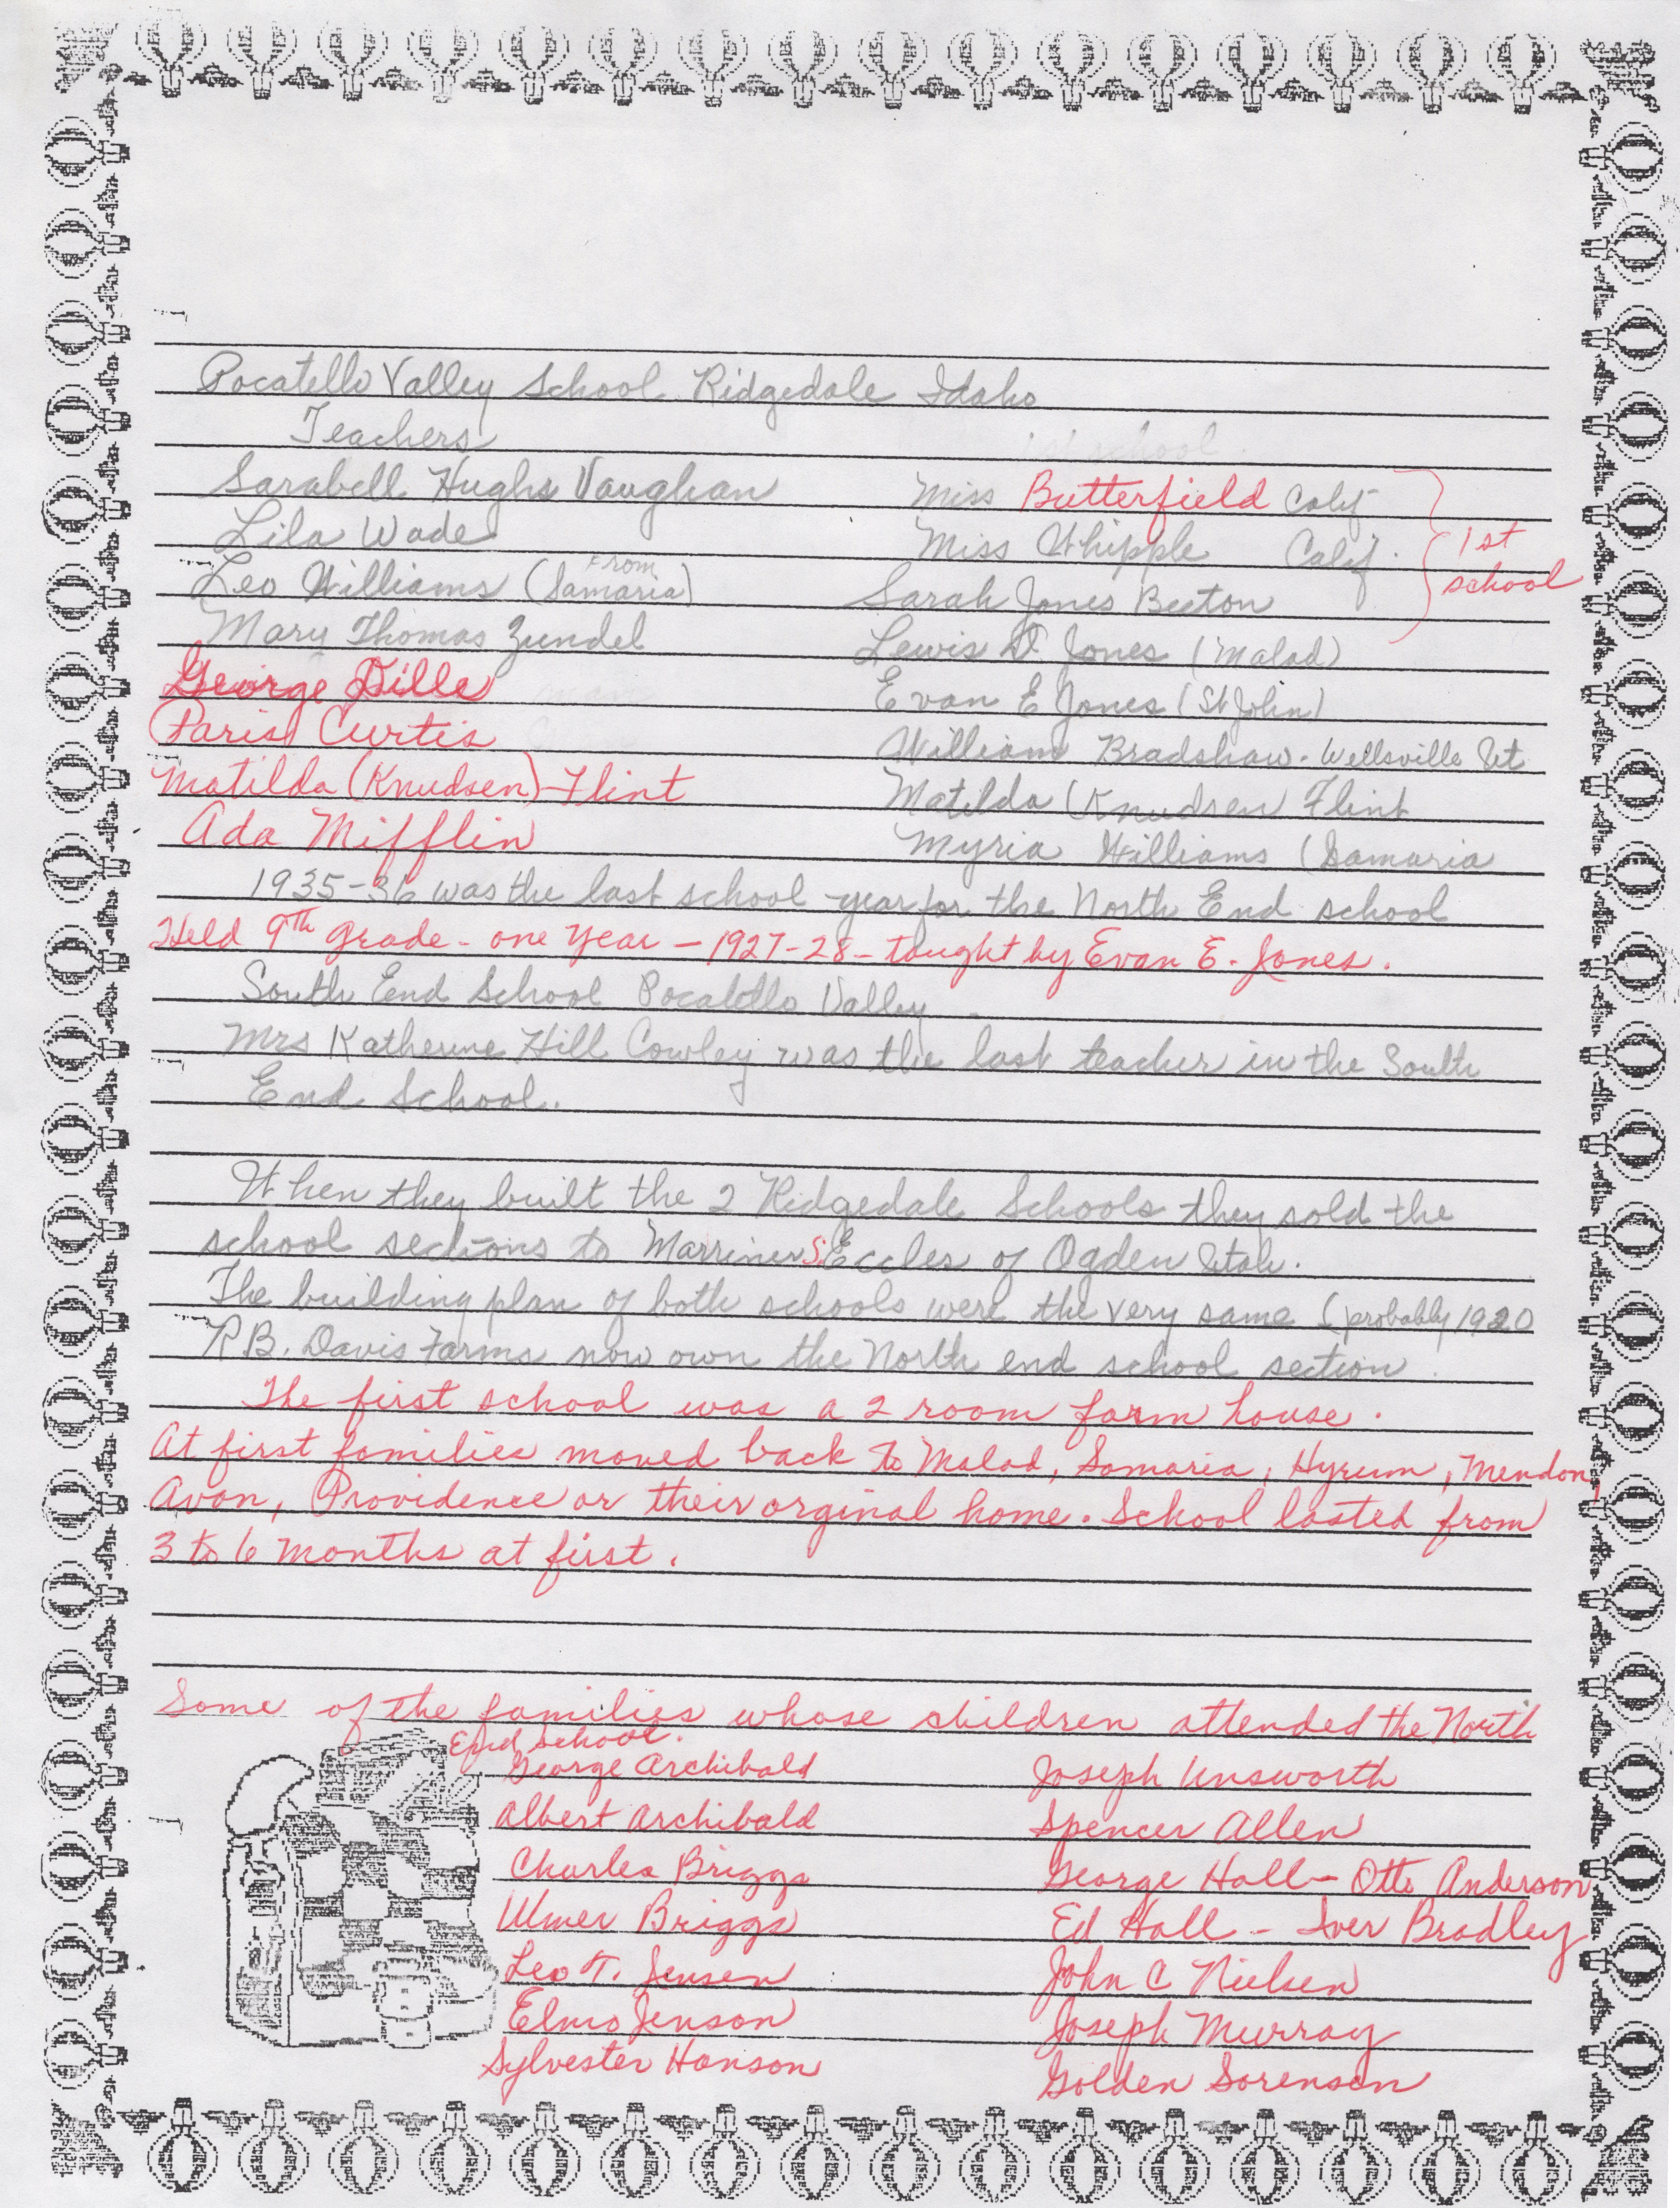 Pocatello Valley School Ridgedale Idaho
Teachers
school
Sarabell Hughs Vaughan
Lila Wade
Leo Williams (From Samaria)
Mary Thomas Zundel
George Dille
Paris Curtis
Matilda (Knudsen) Flint
Ada Mifflin
Miss Butterfield Calif
Miss Whipple Calif.
Sarah Jones Beeton
1st
school
Lewis D. Jones (Malad)
Evan E Jones (St John)
William Bradshaw - Wellsville Ut
Matilda (Knudsen) Flint
Myria Williams (Samaria
1935-36 was the last school year for the North End school
Held 9th grade - one year - 1927-28 - taught by Evan E. Jones.
South End School Pocatello Valley
Mrs Katherine Hill Cowley was the last teacher in the South
End School.
When they built the 2 Ridgedale Schools they sold the
school sections to Marriner S. Eccles of Ogden Utah.
The building plan of both schools were the very same (probably 1920
R B. Davis Farms now own the North end school section.
The first school was a 2 room farm house.
At first families moved back to Malad, Samaria, Hyrum, Mendon,
Avon, Providence or their orginal home. School lasted from
3 to 6 months at first.
Some of the families whose children attended the North
End school.
George Archibald
Albert Archibald
Charles Briggs
Ulmer Briggs
Leo T. Jensen
Elmo Jenson
Sylvester Hanson
Joseph Unsworth
Spencer Allen
George Hall - Otto Anderson
Ed Hall - Iver Bradley
John C Nielsen
Joseph Murray
Golden Sorensen